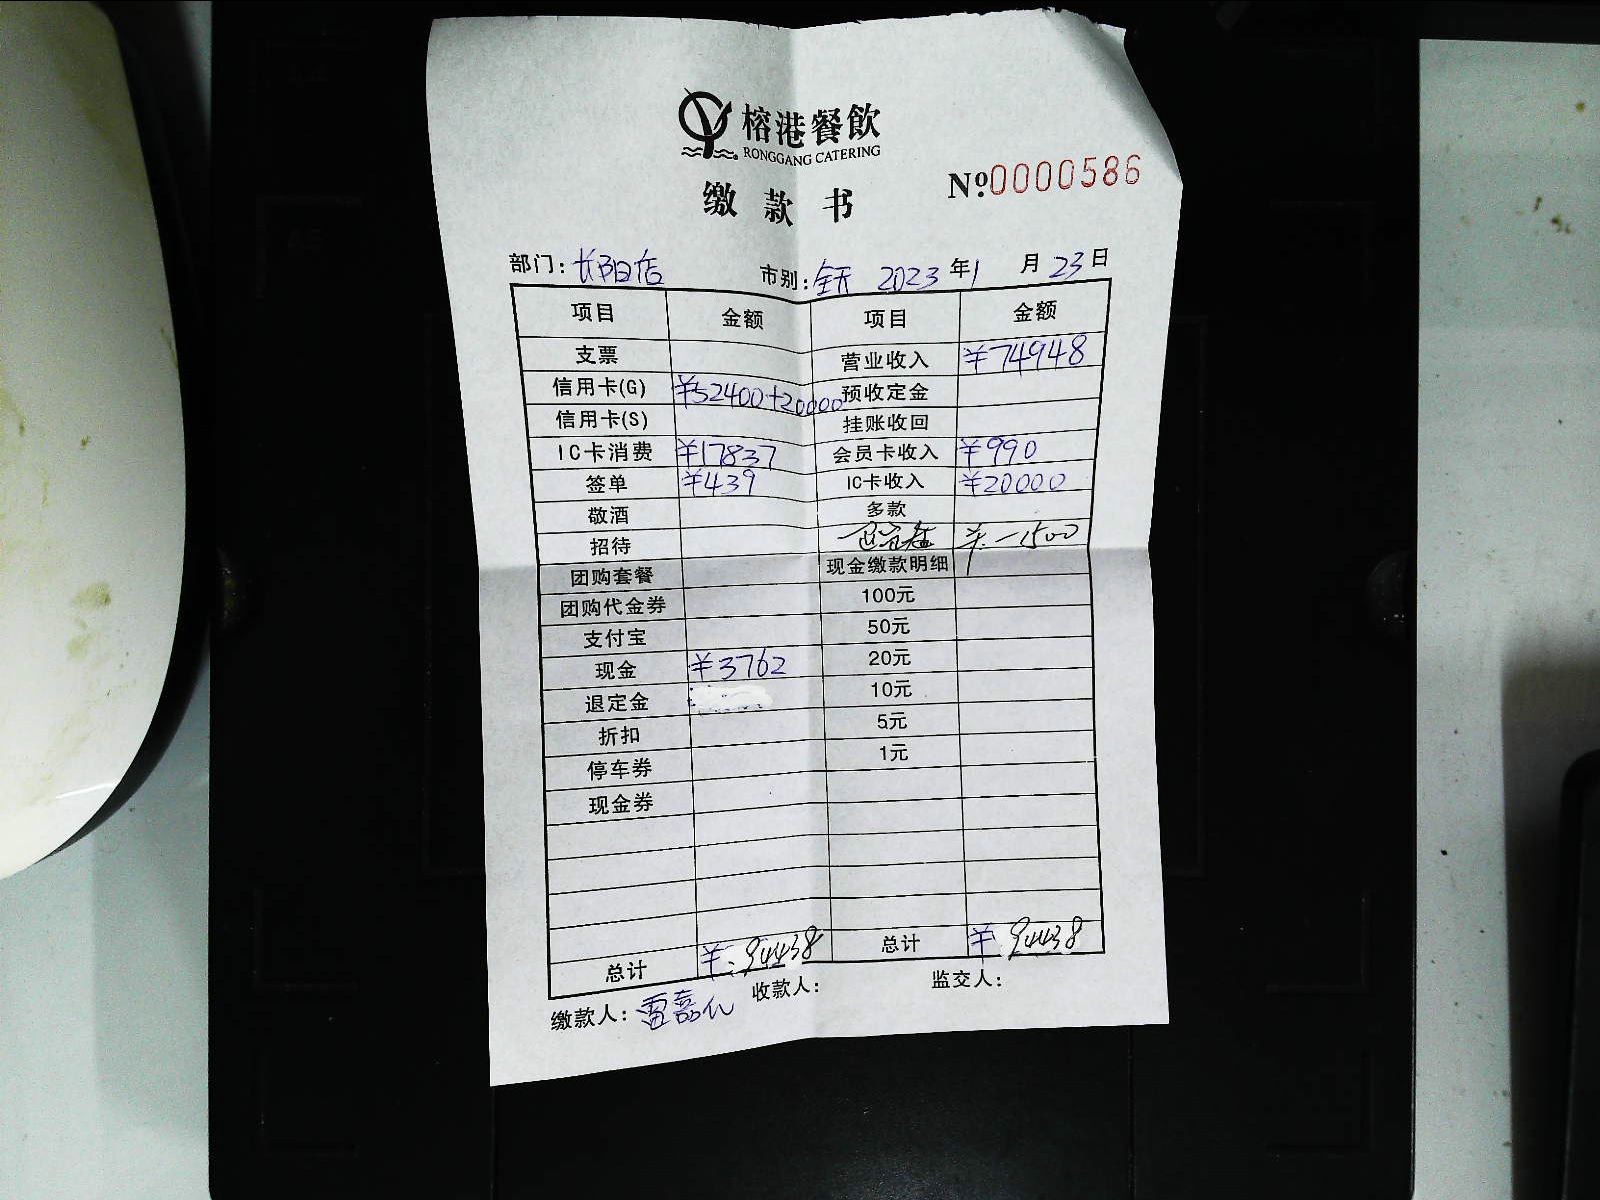 榕港餐飲
RONGGANG CATERING
缴款书
№0000586
部门：长阳店 市别：全天 2023年1月23日
项目 金额 项目 金额
支票 营业收入 ¥74948
信用卡(G) ¥52400+20000 预收定金
信用卡(S) 挂账收回
IC卡消费 ¥17837 会员卡收入 ¥990
签单 ¥439 IC卡收入 ¥20000
敬酒 多款
招待 ¥-1500
团购套餐 现金缴款明细
团购代金券 100元
支付宝 50元
现金 ¥3762 20元
退定金 10元
折扣 5元
停车券 1元
现金券
总计 ¥94438 总计 ¥94438
缴款人：雷嘉 收款人： 监交人：